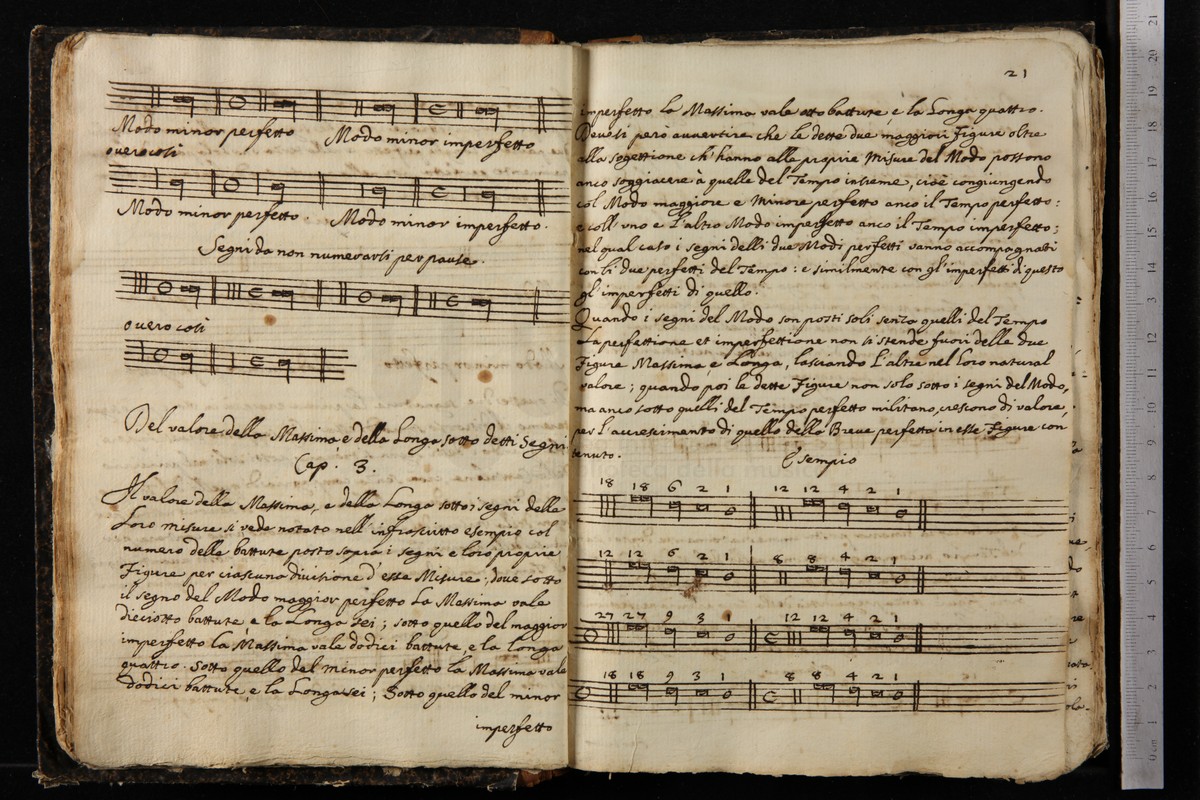 Modo minor perfetto Modo minor imperfetto
overo così
Modo minor perfetto. Modo minor imperfetto.
Segni da non numerarsi per pause.
overo così
Del valore della Massima e della Longa sotto detti Segni.
Cap. 3.
Il valore della Massima, e della Longa sotto i segni delle
Loro misure si vede notato nell'infrascritto esempio col
numero delle battute posto sopra i segni e loro proprie
Figure per ciascuna divisione d'esse Misure; dove sotto
il segno del Modo maggior perfetto La Massima vale
dieciotto battute e la Longa sei; sotto quello del maggior
imperfetto la Massima vale dodici battute, e la longa
quattro. Sotto quello del minor perfetto la Massima vale
dodici battute, e la Longa sei; Sotto quello del minor
imperfetto
21
imperfetto la Massima vale otto battute e la Longa quattro.
Devesi però avvertire che le dette due maggiori Figure oltre
alla sogettione ch'hanno alle proprie Misure del Modo possono
anco soggiacere à quelle del Tempo insieme, cioè congiungendo
col Modo maggiore e Minore perfetto anco il Tempo perfetto:
e coll'uno e l'altro Modo imperfetto anco il Tempo imperfetto;
nel qual caso i segni delli due Modi perfetti vanno accompagnati
con li due perfetti del Tempo: e similmente con gl'imperfetti di questo
gl'imperfetti di quello.
Quando i segni del Modo son posti soli senza quelli del Tempo
La perfettione et imperfettione non si stende fuori delle due
Figure Massima e Longa, lasciando l'altre nel loro natural
valore; quando poi le dette Figure non solo sotto i segni del Modo,
ma anco sotto quelli del Tempo perfetto militano, crescono di valore,
per l'accrescimento di quello della Breve perfetta in esse Figure con
tenuto.
Esempio
18 18 6 2 1 12 12 4 2 1
12 12 6 2 1 8 8 4 2 1
27 27 9 3 1 12 12 4 2 1
18 18 9 3 1 8 8 4 2 1